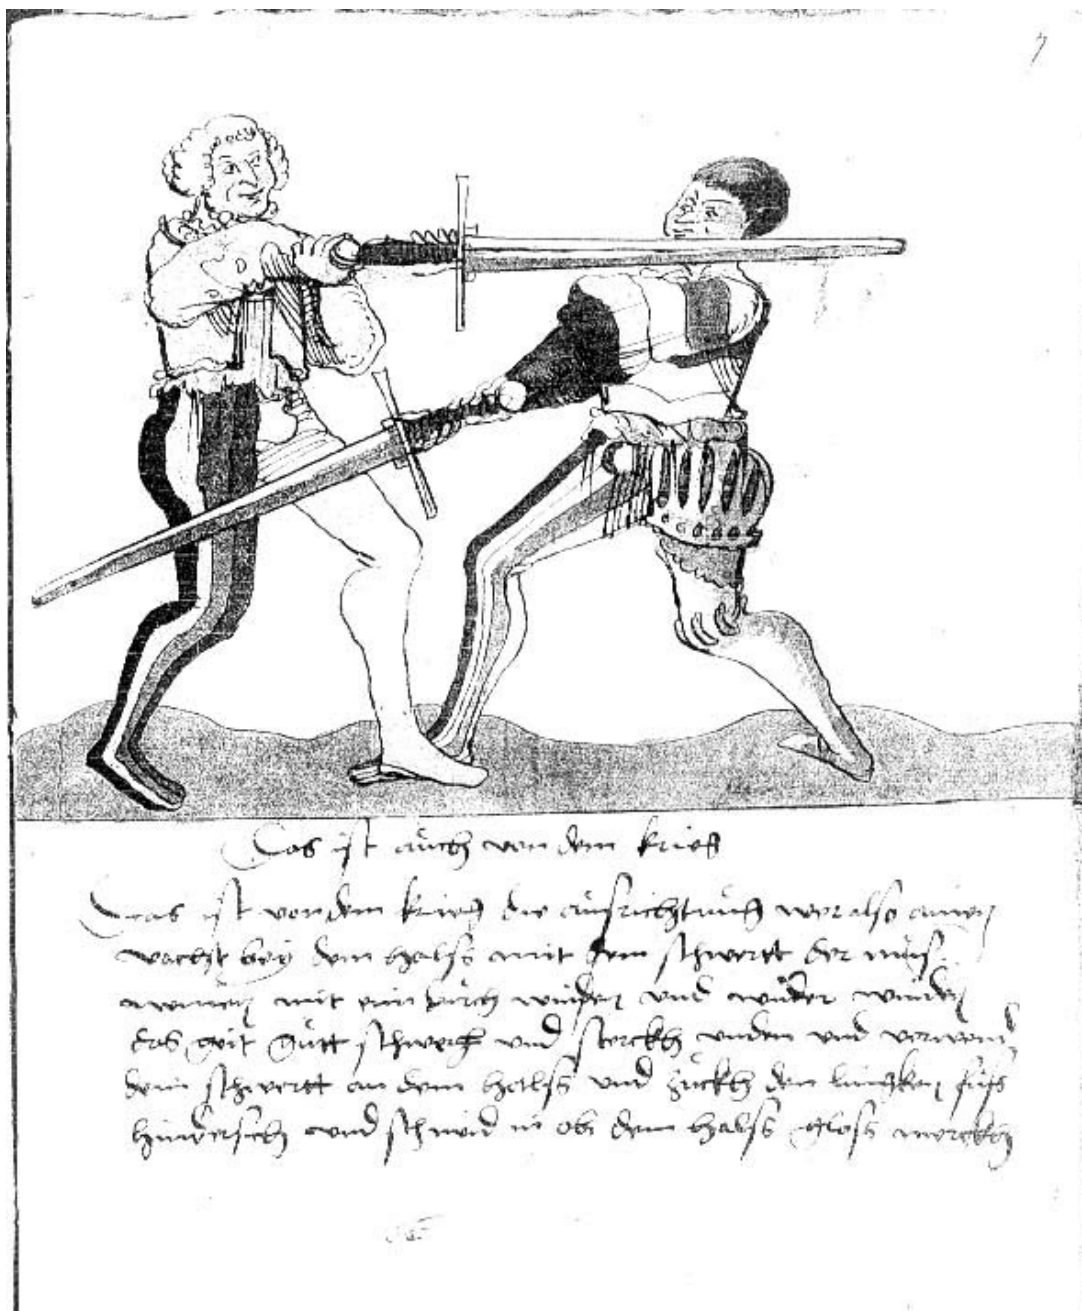 7
Das ist auch von dem krieg
Das ist von dem krieg die ausrichtung wer also ainen
wacht bey dem halss mit dem schwertt der mus
mit ein durch winden und wider winden
das geit gutt schwech und sterckh unden und verwend
dein schwertt an dem halss und zuckh den linckhen fuss
hindersich und schneid in ob dem halss gloss merckh